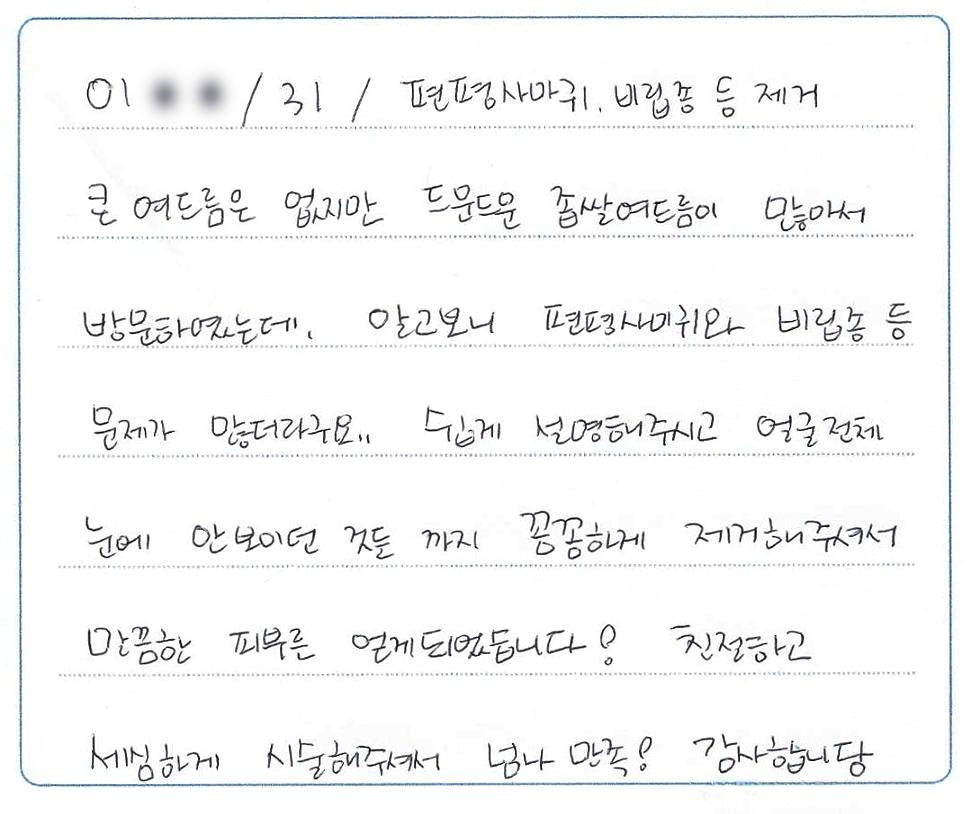 이 ●● / 31 / 편평사마귀, 비립종 등 제거
큰 여드름은 없지만 드문드문 좁쌀여드름이 많아서
방문하였는데, 알고보니 편평사마귀와 비립종 등
문제가 많더라구요.. 쉽게 설명해주시고 얼굴전체
눈에 안보이던 것들 까지 꽁꽁하게 제거해주셔서
말끔한 피부를 얻게되었습니다! 친절하고
세심하게 시술해주셔서 넘나 만족! 감사합니당